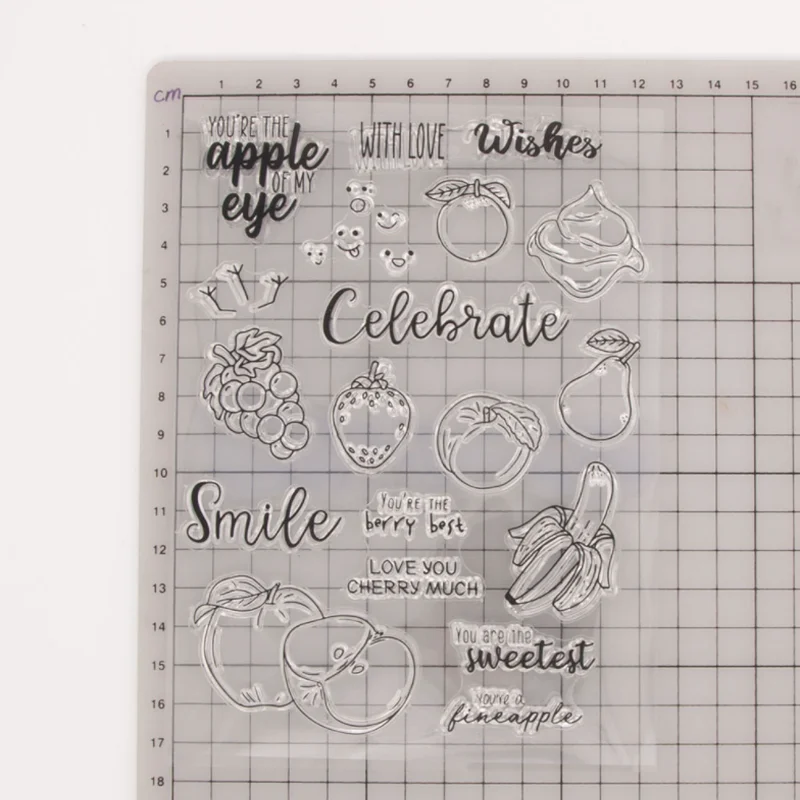 cm
1 2 3 4 5 6 7 8 9 10 11 12 13 14 15 16
1
2
3
4
5
6
7
8
9
10
11
12
13
14
15
16
17
18
YOU'RE THE
apple
OF MY
eye
WITH LOVE
Wishes
Celebrate
Smile
YOU'RE THE
berry best
LOVE YOU
CHERRY MUCH
You are the
sweetest
you're a
fineapple